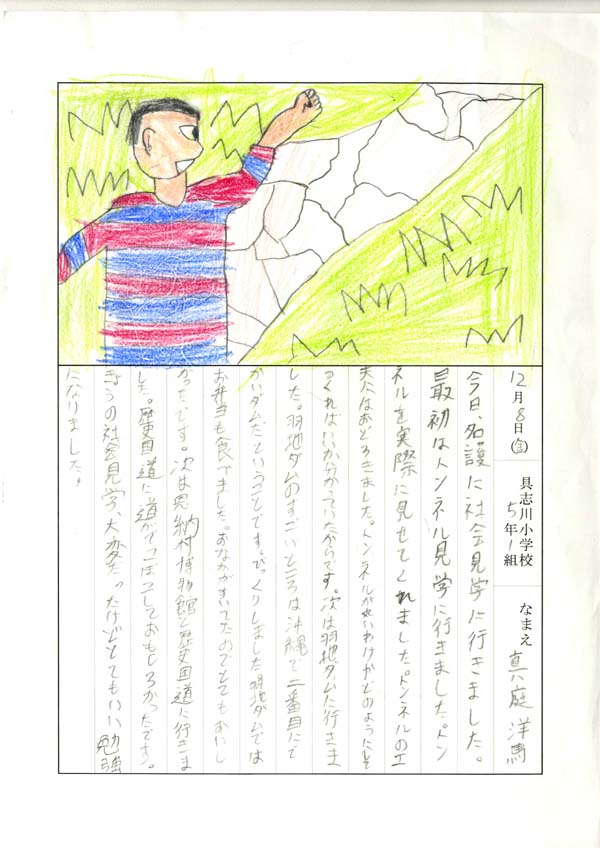 12月8日(金) 具志川小学校 5年1組 なまえ 真庭 洋馬
今日、名護に社会見学に行きました。
最初はトンネル見学に行きました。トン
ネルを実際に見せてくれました。トンネルの工
夫にはおどろきました。トンネルが大いわけがどのようにして
つくればいいか分かっていたからです。次は羽地ダムに行きま
した。羽地ダムのすごいところは沖縄で二番目にで
かいダムだということです。びっくりしました。羽地ダムでは
お弁当も食べました。おなかがすいてたのでとてもおいし
かったです。次は恩納村博物館と歴史国道に行きま
した。歴史国道は道がでこぼこしておもしろかったです。
きょうの社会見学、大変だったけどとてもいい勉強
になりました。